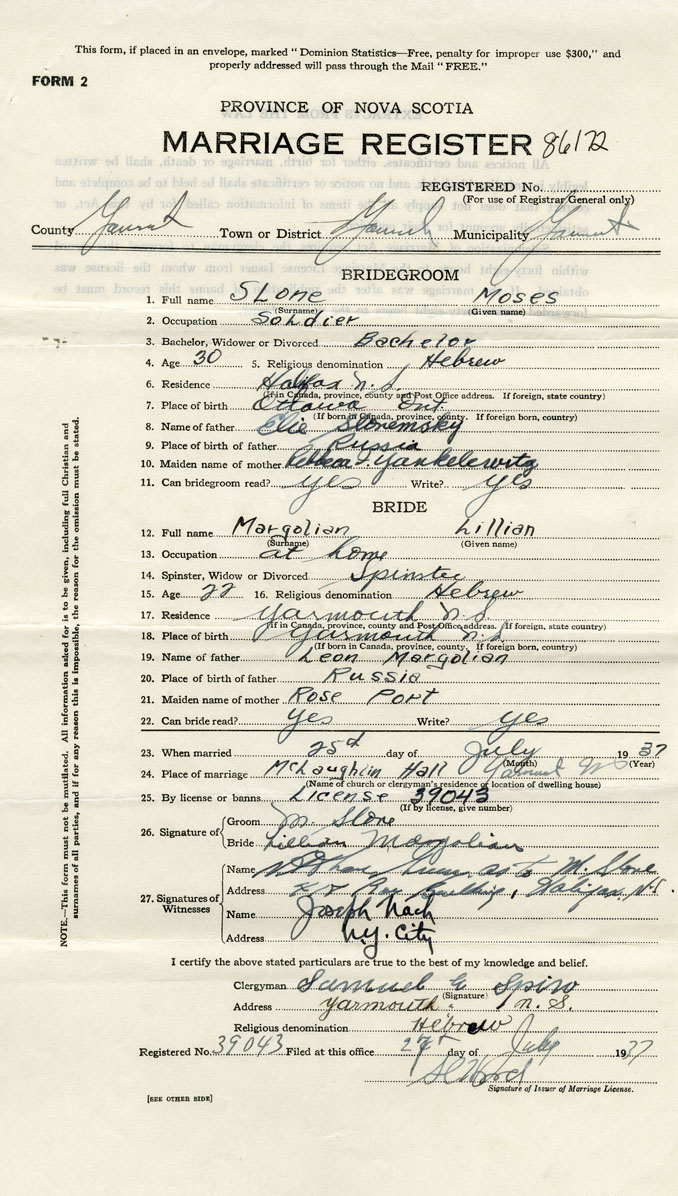 This form, if placed in an envelope, marked "Dominion Statistics—Free, penalty for improper use $300," and
properly addressed will pass through the Mail "FREE."
FORM 2
PROVINCE OF NOVA SCOTIA
MARRIAGE REGISTER 86172
REGISTERED No.
(For use of Registrar General only)
County Yarmouth Town or District Yarmouth Municipality Yarmouth
BRIDEGROOM
1. Full name Slone Moses
(Surname) (Given name)
2. Occupation Soldier
3. Bachelor, Widower or Divorced Bachelor
4. Age 30 5. Religious denomination Hebrew
6. Residence Halifax N.S.
(If in Canada, province, county and Post Office address. If foreign, state country)
7. Place of birth Ottawa Ont.
(If born in Canada, province, county. If foreign born, county)
8. Name of father Elie Slonemsky
9. Place of birth of father Russia
10. Maiden name of mother Rebecca Yankelewitz
11. Can bridegroom read? yes Write? yes
BRIDE
12. Full name Margolian Lillian
(Surname) (Given name)
13. Occupation at home
14. Spinster, Widow or Divorced Spinster
15. Age 22 16. Religious denomination Hebrew
17. Residence Yarmouth N.S.
(If in Canada, province, county and Post Office, address. If foreign, state country)
18. Place of birth Yarmouth N.S.
(If born in Canada, province, county. If foreign born, county)
19. Name of father Leon Margolian
20. Place of birth of father Russia
21. Maiden name of mother Rose Port
22. Can bride read? yes Write? yes
23. When married 25th day of July 1937
(Month) (Year)
24. Place of marriage McLaughlin Hall Yarmouth NS
(Name of church or clergyman's residence or location of dwelling house)
25. By license or banns License 39043
(If by license, give number)
26. Signature of Groom M. Slone
Bride Lillian Margolian
27. Signatures of Witnesses
Name as to M. Slone
Address Roy Building, Halifax, N.S.
Name Joseph Nach
Address N.Y. City
I certify the above stated particulars are true to the best of my knowledge and belief.
Clergyman Samuel E Spiro
(Signature)
Address Yarmouth, N.S.
Religious denomination Hebrew
Registered No. 39043 Filed at this office 27 day of July 1937
Signature of Issuer of Marriage License.
[SEE OTHER SIDE]
NOTE.—This form must not be mutilated. All information asked for is to be given, including full Christian and
surnames of all parties, and if for any reason this is impossible, the reason for the omission must be stated.